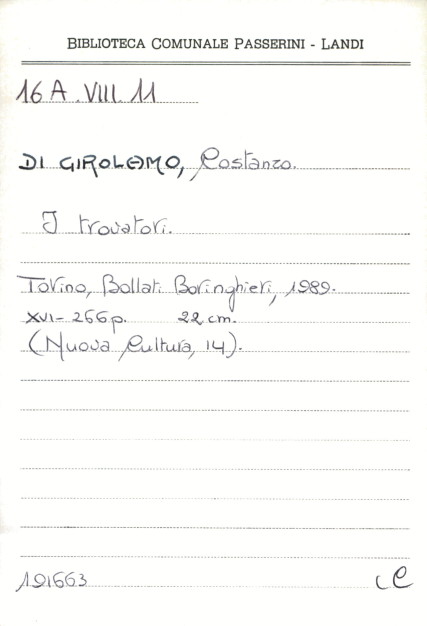 BIBLIOTECA COMUNALE PASSERINI - LANDI
16 A . VIII . 11
DI GIROLAMO, Costanzo.
I trovatori.
Torino, Bollati Boringhieri, 1989.
XVI- 266 p. 22 cm.
(Nuova Cultura, 14).
191663